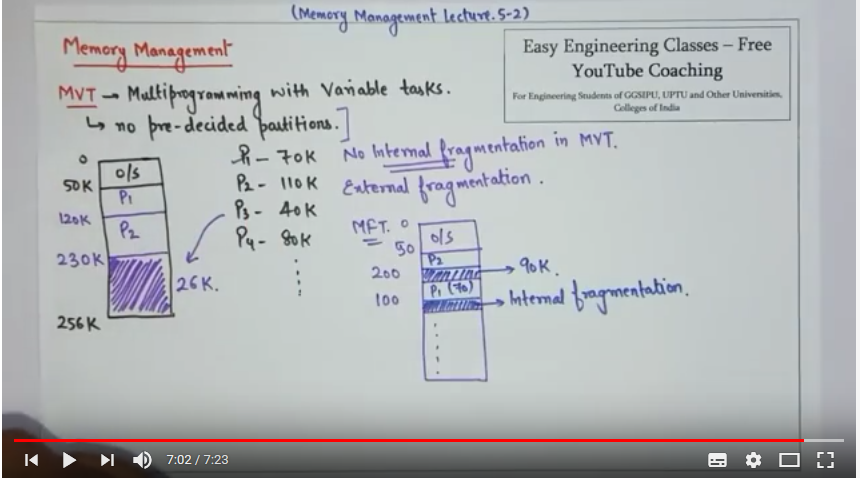 (Memory Management Lecture.5-2)
Memory Management
Easy Engineering Classes – Free
YouTube Coaching
For Engineering Students of GGSIPU, UPTU and Other Universities,
Colleges of India
MVT → Multiprogramming with Variable tasks.
↳ no pre-decided partitions.]
0
O/S
50K
P1
120K
P2
230K
26K.
256K
P1 – 70K
P2 - 110K
P3 - 40K
P4 - 80K
No Internal fragmentation in MVT.
External fragmentation.
MFT. 0
O/S
50
P2
200
→ 90K.
P1 (70)
100
→ Internal fragmentation.
7:02 / 7:23